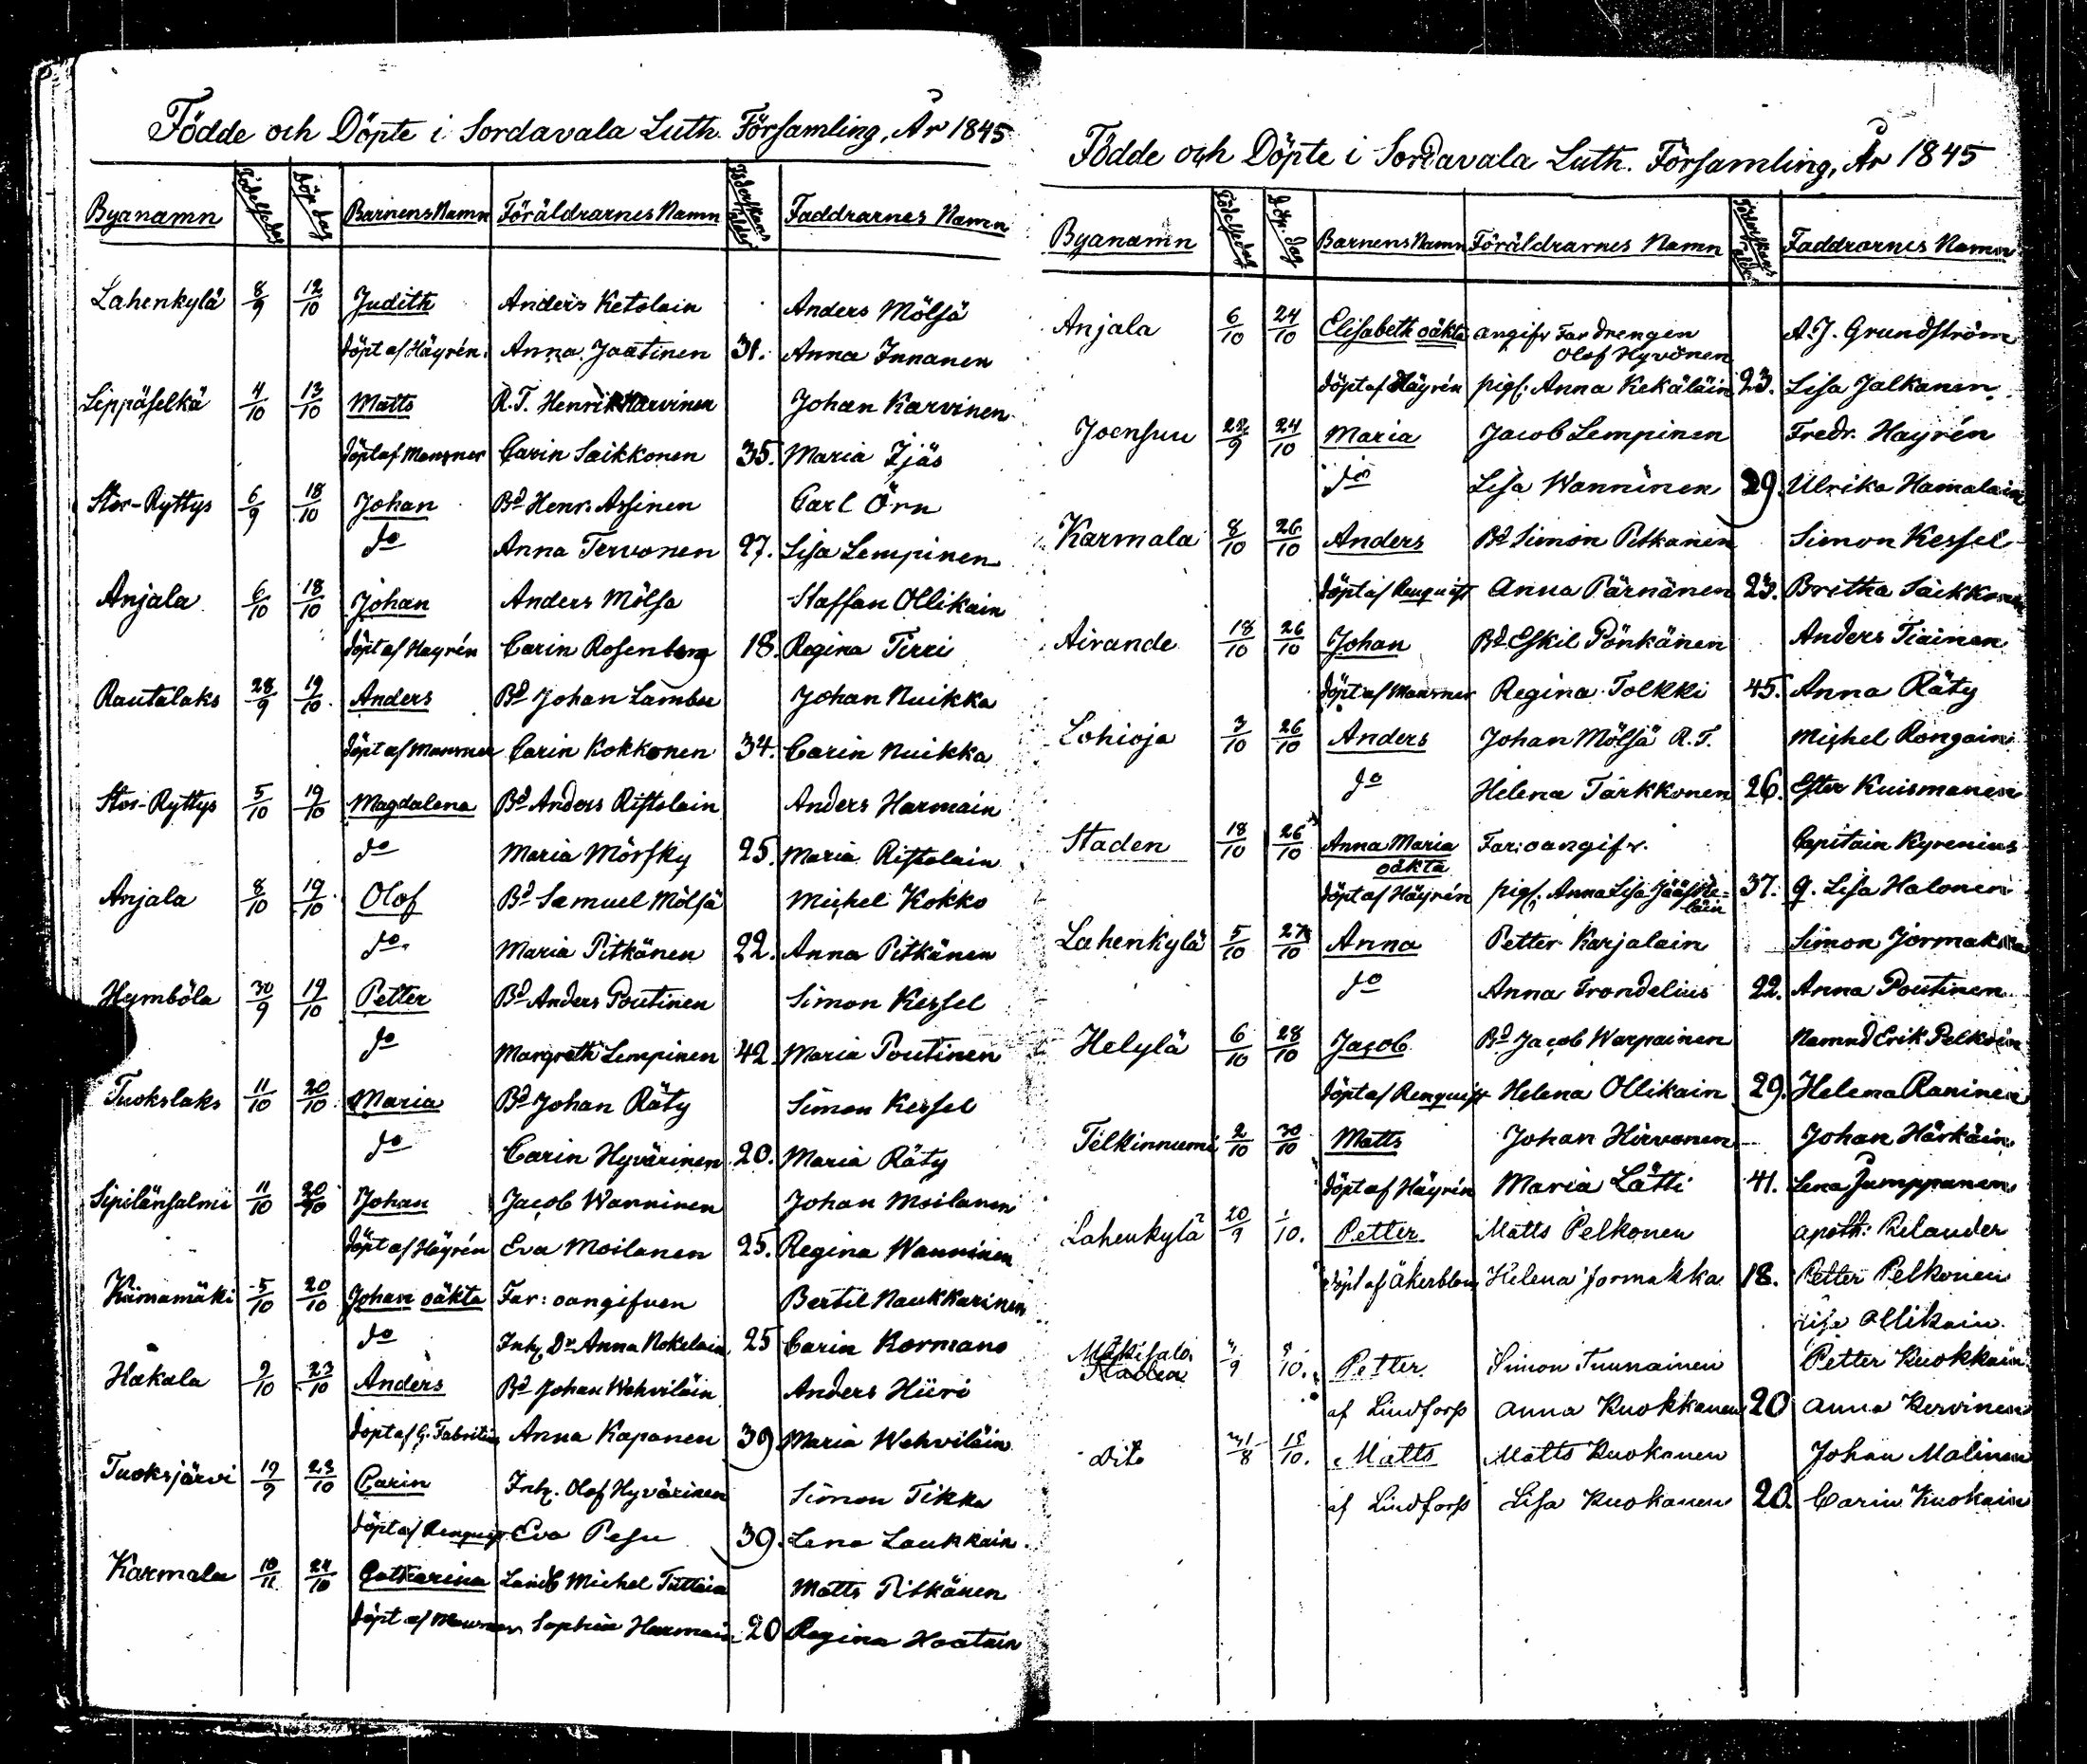 Födde och Döpte i Sordavala Luth. Församling, År 1845
Byanamn Födelsedag Döp. dag Barnens Namn Föräldrarnes Namn Föderskans ålder Faddrarnes Namn
Lahenkylä 8/9 12/10 Judith Anders Ketolain Anders Mölsä
döpt af Häyrén. Anna Jaatinen 31. Anna Innanen
Leppäselkä 4/10 13/10 Matts R.T. Henrik Karvinen Johan Karvinen
döpt af Monsner Carin Saikkonen 35. Maria Ijäs
Stor-Ryttys 6/9 18/10 Johan Bd Henr. Assinen Carl Örn
do Anna Tervonen 27. Lisa Lempinen
Anjala 6/10 18/10 Johan Anders Mölsa Staffan Ollikain
döpt af Hayrén Carin Rosenberg 18. Regina Tirri
Rautalaks 28/9 19/10 Anders Bd Johan Lambee Johan Nuikka
döpt af Carin Kokkonen 34. Carin Nuikka
Stor-Ryttys 5/10 19/10 Magdalena Bd Anders Ristolain Anders Harmain
do Maria Mörsky 25. Maria Ristolain
Anjala 8/10 19/10 Olof Bd Samuel Mölsä Michel Kokko
do Maria Pitkänen 22. Anna Pitkänen
Hymböla 30/9 19/10 Petter Bd Anders Poutinen Simon Kessel
do Margreth Lempinen 42. Maria Poutinen
Tuokslaks 11/10 20/10 Maria Bd Johan Räty Simon Kessel
do Carin Hyvärinen 20. Maria Räty
Sipilänsalmi 11/10 20/10 Johan Jacob Wanninen Johan Moilanen
döpt af Häyrén Eva Moilanen 25. Regina Wanninen
Kiimamäki 5/10 20/10 Johan oäkta Far: oangifven Bertil Naukkarinen
do Inh. Dr Anna Nokelain 25 Carin Kormano
Hakala 9/10 23/10 Anders Bd Johan Wehviläin Anders Hiiri
döpt af G. Fabritius Anna Kapanen 39 Maria Wehviläin
Tuoksjärvi 19/9 23/10 Carin Inh. Olof Hyvärinen Simon Tikka
döpt af Renquist Eva Pesu 39. Lena Laukkain
Karmala 10/11 24/10 Catharina Landb Michel Tuttain Matts Pitkänen
döpt af Sophia Harmain 20 Regina
Födde och Döpte i Sordavala Luth. Församling, År 1845
Byanamn Födelsedag Döp. dag Barnens Namn Föräldrarnes Namn Föderskans ålder Faddrarnes Namn
Anjala 6/10 24/10 Elisabeth oäkta angifv Far drengen A.J. Grundström
Olof Hyvönen
döpt af Häyrén pigs: Anna Kekäläin 23. Lisa Jalkanen
Joensuu 22/9 24/10 Maria Jacob Lempinen Fredr. Hayrén
do Lisa Wanninen 29. Ulrika Hamalain
Karmala 8/10 26/10 Anders Bd Simon Pitkanen Simon Kessel
döpt af Renquist Anna Pärnänen 23. Britha Saikkonen
Airande 18/10 26/10 Johan Bd Eskil Pönkänen Anders Tiainen
döpt af Monsner Regina Tolkki 45. Anna Räty
Lohioja 3/10 26/10 Anders Johan Mölsä R.T. Michel Rongain
do Helena Tarkkonen 26. Ester Kuismanen
Staden 18/10 26/10 Anna Maria Far: oangifv. Capitain Kyrenius
oäkta
döpt af Häyrén pigs: Anna Lisa Jääske- 37. q. Lisa Halonen
läin
Lahenkylä 5/10 27/10 Anna Petter Karjalain Simon Jormakka
do Anna Trondelius 22. Anna Poutinen
Helylä 6/10 28/10 Jacob Bd Jacob Warpainen Namnd Erik Pelkoin
döpt af Renquist Helena Ollikain 29. Helena Raninen
Telkinnumi 2/10 30/10 Matts Johan Hirvonen Johan Härkäin
döpt af Häyrén Maria Lätti 41. Lena Jumppanen
Lahenkylä 20/9 1/10. Petter Matts Pelkonen apoth: Relander
döpt af Åkerblom Helena Jormakka 18. Petter Pelkonen
Lisa Ollikain
Mäkisalo /9 /10. Petter Simon Tuunainen Petter Kuokkain
af Lindforss Anna Kuokkanen 20 Anna Kervinen
Dito 31/8 15/10. Matts Matts Kuokanen Johan Malinen
af Lindforss Lisa Kuokanen 20. Carin Kuokain